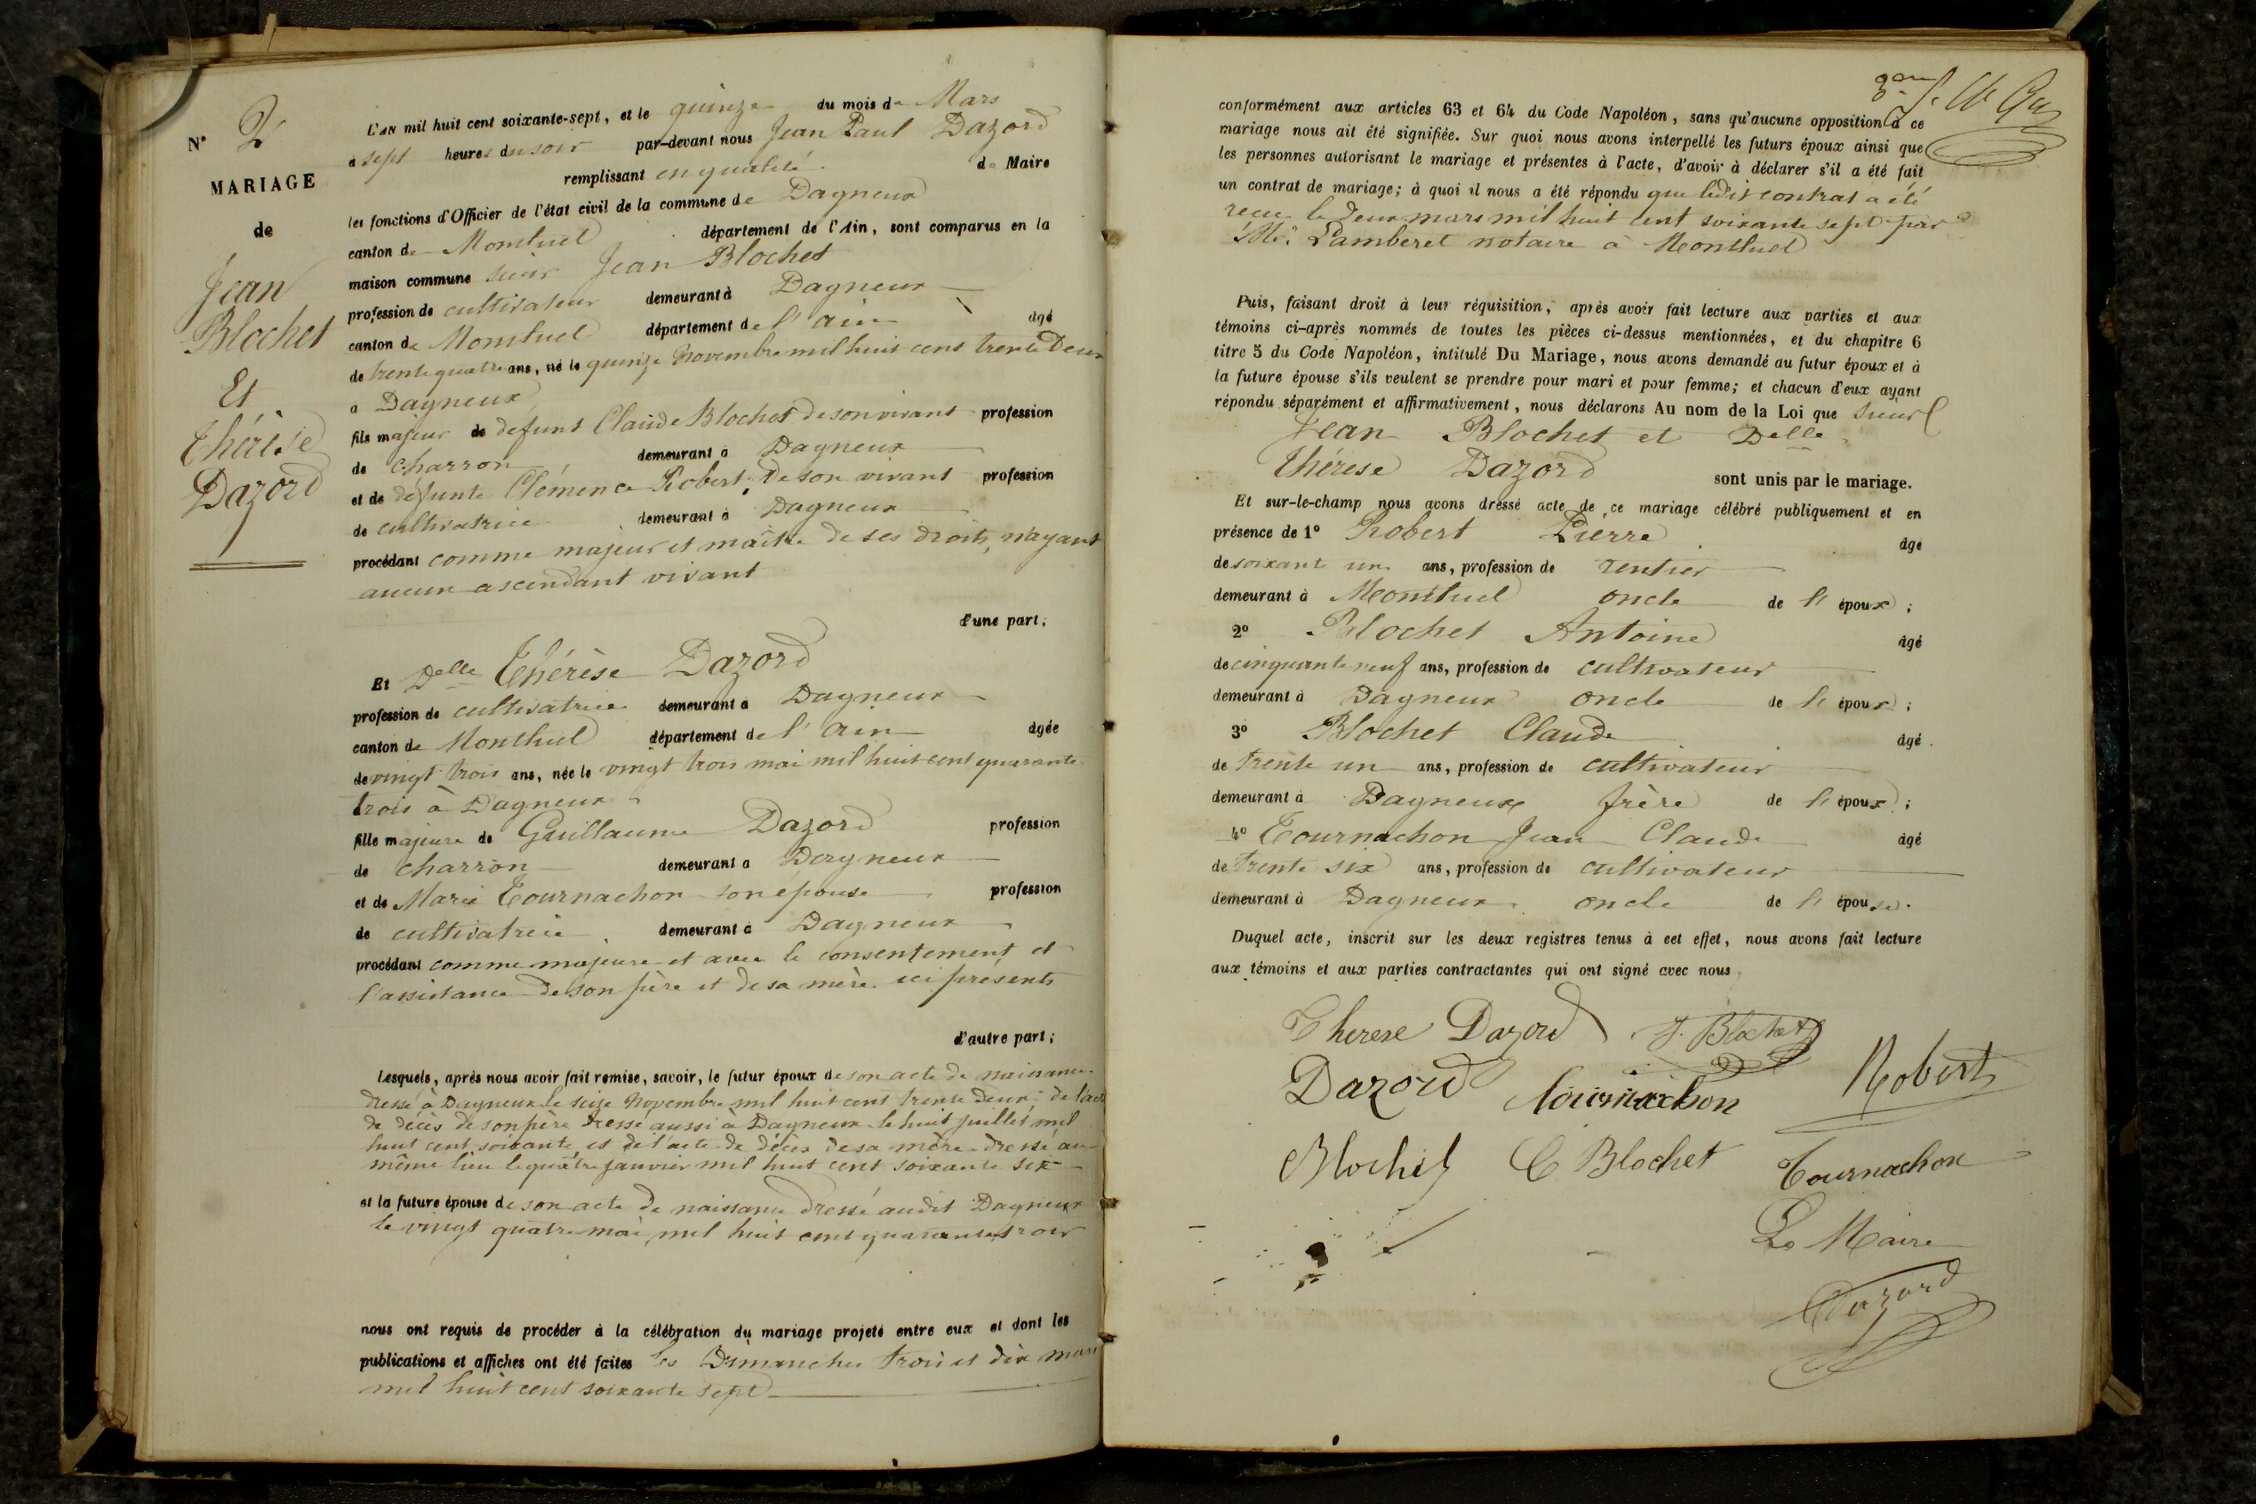 N° 2
MARIAGE
de
Jean
Blochet
Et
Thérèse
Dazord
L'AN mil huit cent soixante-sept, et le quinze du mois de Mars
à sept heures du soir par-devant nous Jean Paul Dazord
remplissant en qualité de Maire
les fonctions d'Officier de l'état civil de la commune de Dagneux
canton de Montluel département de l'Ain, sont comparus en la
maison commune sieur Jean Blochet
profession de cultivateur demeurant à Dagneux
canton de Montluel département de l'ain âgé
de trente quatre ans, né le quinze Novembre mil huit cent trente Deux
à Dagneux
fils majeur de defunt Claude Blochet de son vivant profession
de charron demeurant à Dagneux
et de défunte Clémence Robert, De son vivant profession
de cultivatrice demeurant à Dagneux
procédant comme majeur et maître de ses droits, n'ayant
aucun ascendant vivant
d'une part;
Et Delle Thérèse Dazord
profession de cultivatrice demeurant à Dagneux
canton de Montluel département de l'ain âgée
de vingt trois ans, née le vingt trois mai mil huit cent quarante
trois à Dagneux
fille majeure de Guillaume Dazord profession
de charron demeurant à Dagneux
et de Marie Tournachon son épouse profession
de cultivatrice demeurant à Dagneux
procédant comme majeure et avec le consentement et
l'assistance de son père et de sa mère ici présents
d'autre part;
Lesquels, après nous avoir fait remise, savoir, le futur époux de son acte de naissance
dressé à Dagneux le seize Novembre mil huit cent trente deux; de l'acte
de décès de son père dressé aussi à Dagneux le huit juillet mil
huit cent soixante et de l'acte de décès de sa mère dressé au
même lieu le quatre janvier mil huit cent soixante six
et la future épouse de son acte de naissance dressé audit Dagneux
le vingt quatre mai mil huit cent quarante trois
nous ont requis de procéder à la célébration du mariage projeté entre eux et dont les
publications et affiches ont été faites les Dimanches trois et dix mars
mil huit cent soixante sept
conformément aux articles 63 et 64 du Code Napoléon, sans qu'aucune opposition à ce
mariage nous ait été signifiée. Sur quoi nous avons interpellé les futurs époux ainsi que
les personnes autorisant le mariage et présentes à l'acte, d'avoir à déclarer s'il a été fait
un contrat de mariage; à quoi il nous a été répondu que ledit contrat a été
recu le deux mars mil huit cent soixante sept par
Me Lamberet notaire à Montluel
Puis, faisant droit à leur réquisition, après avoir fait lecture aux parties et aux
témoins ci-après nommés de toutes les pièces ci-dessus mentionnées, et du chapitre 6
titre 5 du Code Napoléon, intitulé Du Mariage, nous avons demandé au futur époux et à
la future épouse s'ils veulent se prendre pour mari et pour femme; et chacun d'eux ayant
répondu séparément et affirmativement, nous déclarons Au nom de la Loi que sieur
Jean Blochet et Delle
Thérèse Dazord sont unis par le mariage.
Et sur-le-champ nous avons dressé acte de ce mariage célébré publiquement et en
présence de 1° Robert Pierre âgé
de soixant un ans, profession de rentier
demeurant à Montluel oncle de l'époux;
2° Blochet Antoine âgé
de cinquante neuf ans, profession de cultivateur
demeurant à Dagneux oncle de l'époux;
3° Blochet Claude âgé
de trente un ans, profession de cultivateur
demeurant à Dagneux frère de l'époux;
4° Tournachon Jean Claude âgé
de trente six ans, profession de cultivateur
demeurant à Dagneux oncle de l'épouse.
Duquel acte, inscrit sur les deux registres tenus à cet effet, nous avons fait lecture
aux témoins et aux parties contractantes qui ont signé avec nous
Therese Dazord J. Blochet
Dazord Tournachon Robert
Blochet C Blochet Tournachon
Le Maire
Dazord